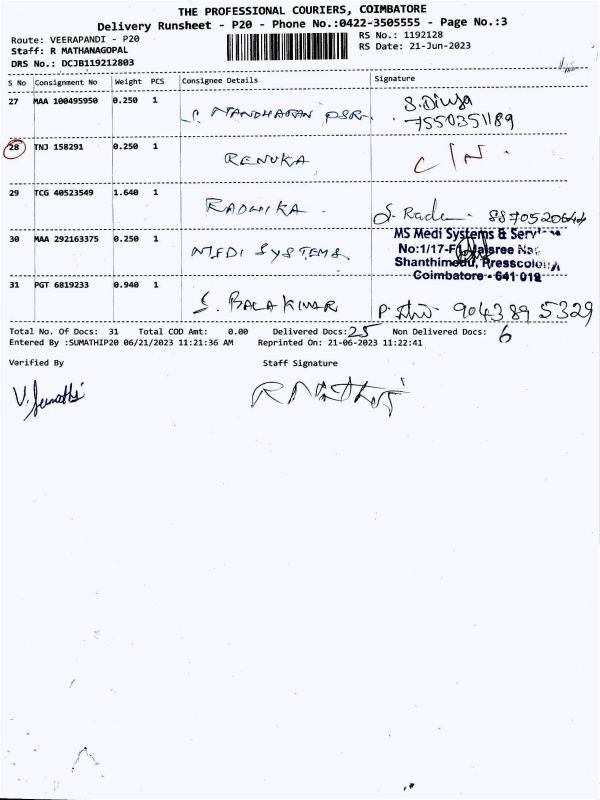 THE PROFESSIONAL COURIERS, COIMBATORE
Delivery Runsheet - P20 - Phone No.:0422-3505555 - Page No.:3
Route: VEERAPANDI - P20
RS No.: 1192128
Staff: R MATHANAGOPAL
RS Date: 21-Jun-2023
DRS No.: DCJB119212803
S No Consignment No Weight PCS Consignee Details Signature
27 MAA 100495950 0.250 1 S. Divya
7550351189
28 TNJ 158291 0.250 1 RENUKA C/N.
29 TCG 40523549 1.640 1 RADHIKA
30 MAA 292163375 0.250 1 MEDI SYSTEMS
MS Medi Systems &
No:1/17-F
Shanthimedu, Presscolony
Coimbatore - 641 019
31 PGT 6819233 0.940 1 S. BALAKUMAR 9043895329
Total No. Of Docs: 31 Total COD Amt: 0.00 Delivered Docs: 25 Non Delivered Docs: 6
Entered By :SUMATHIP20 06/21/2023 11:21:36 AM Reprinted On: 21-06-2023 11:22:41
Verified By Staff Signature
V. Sumathi